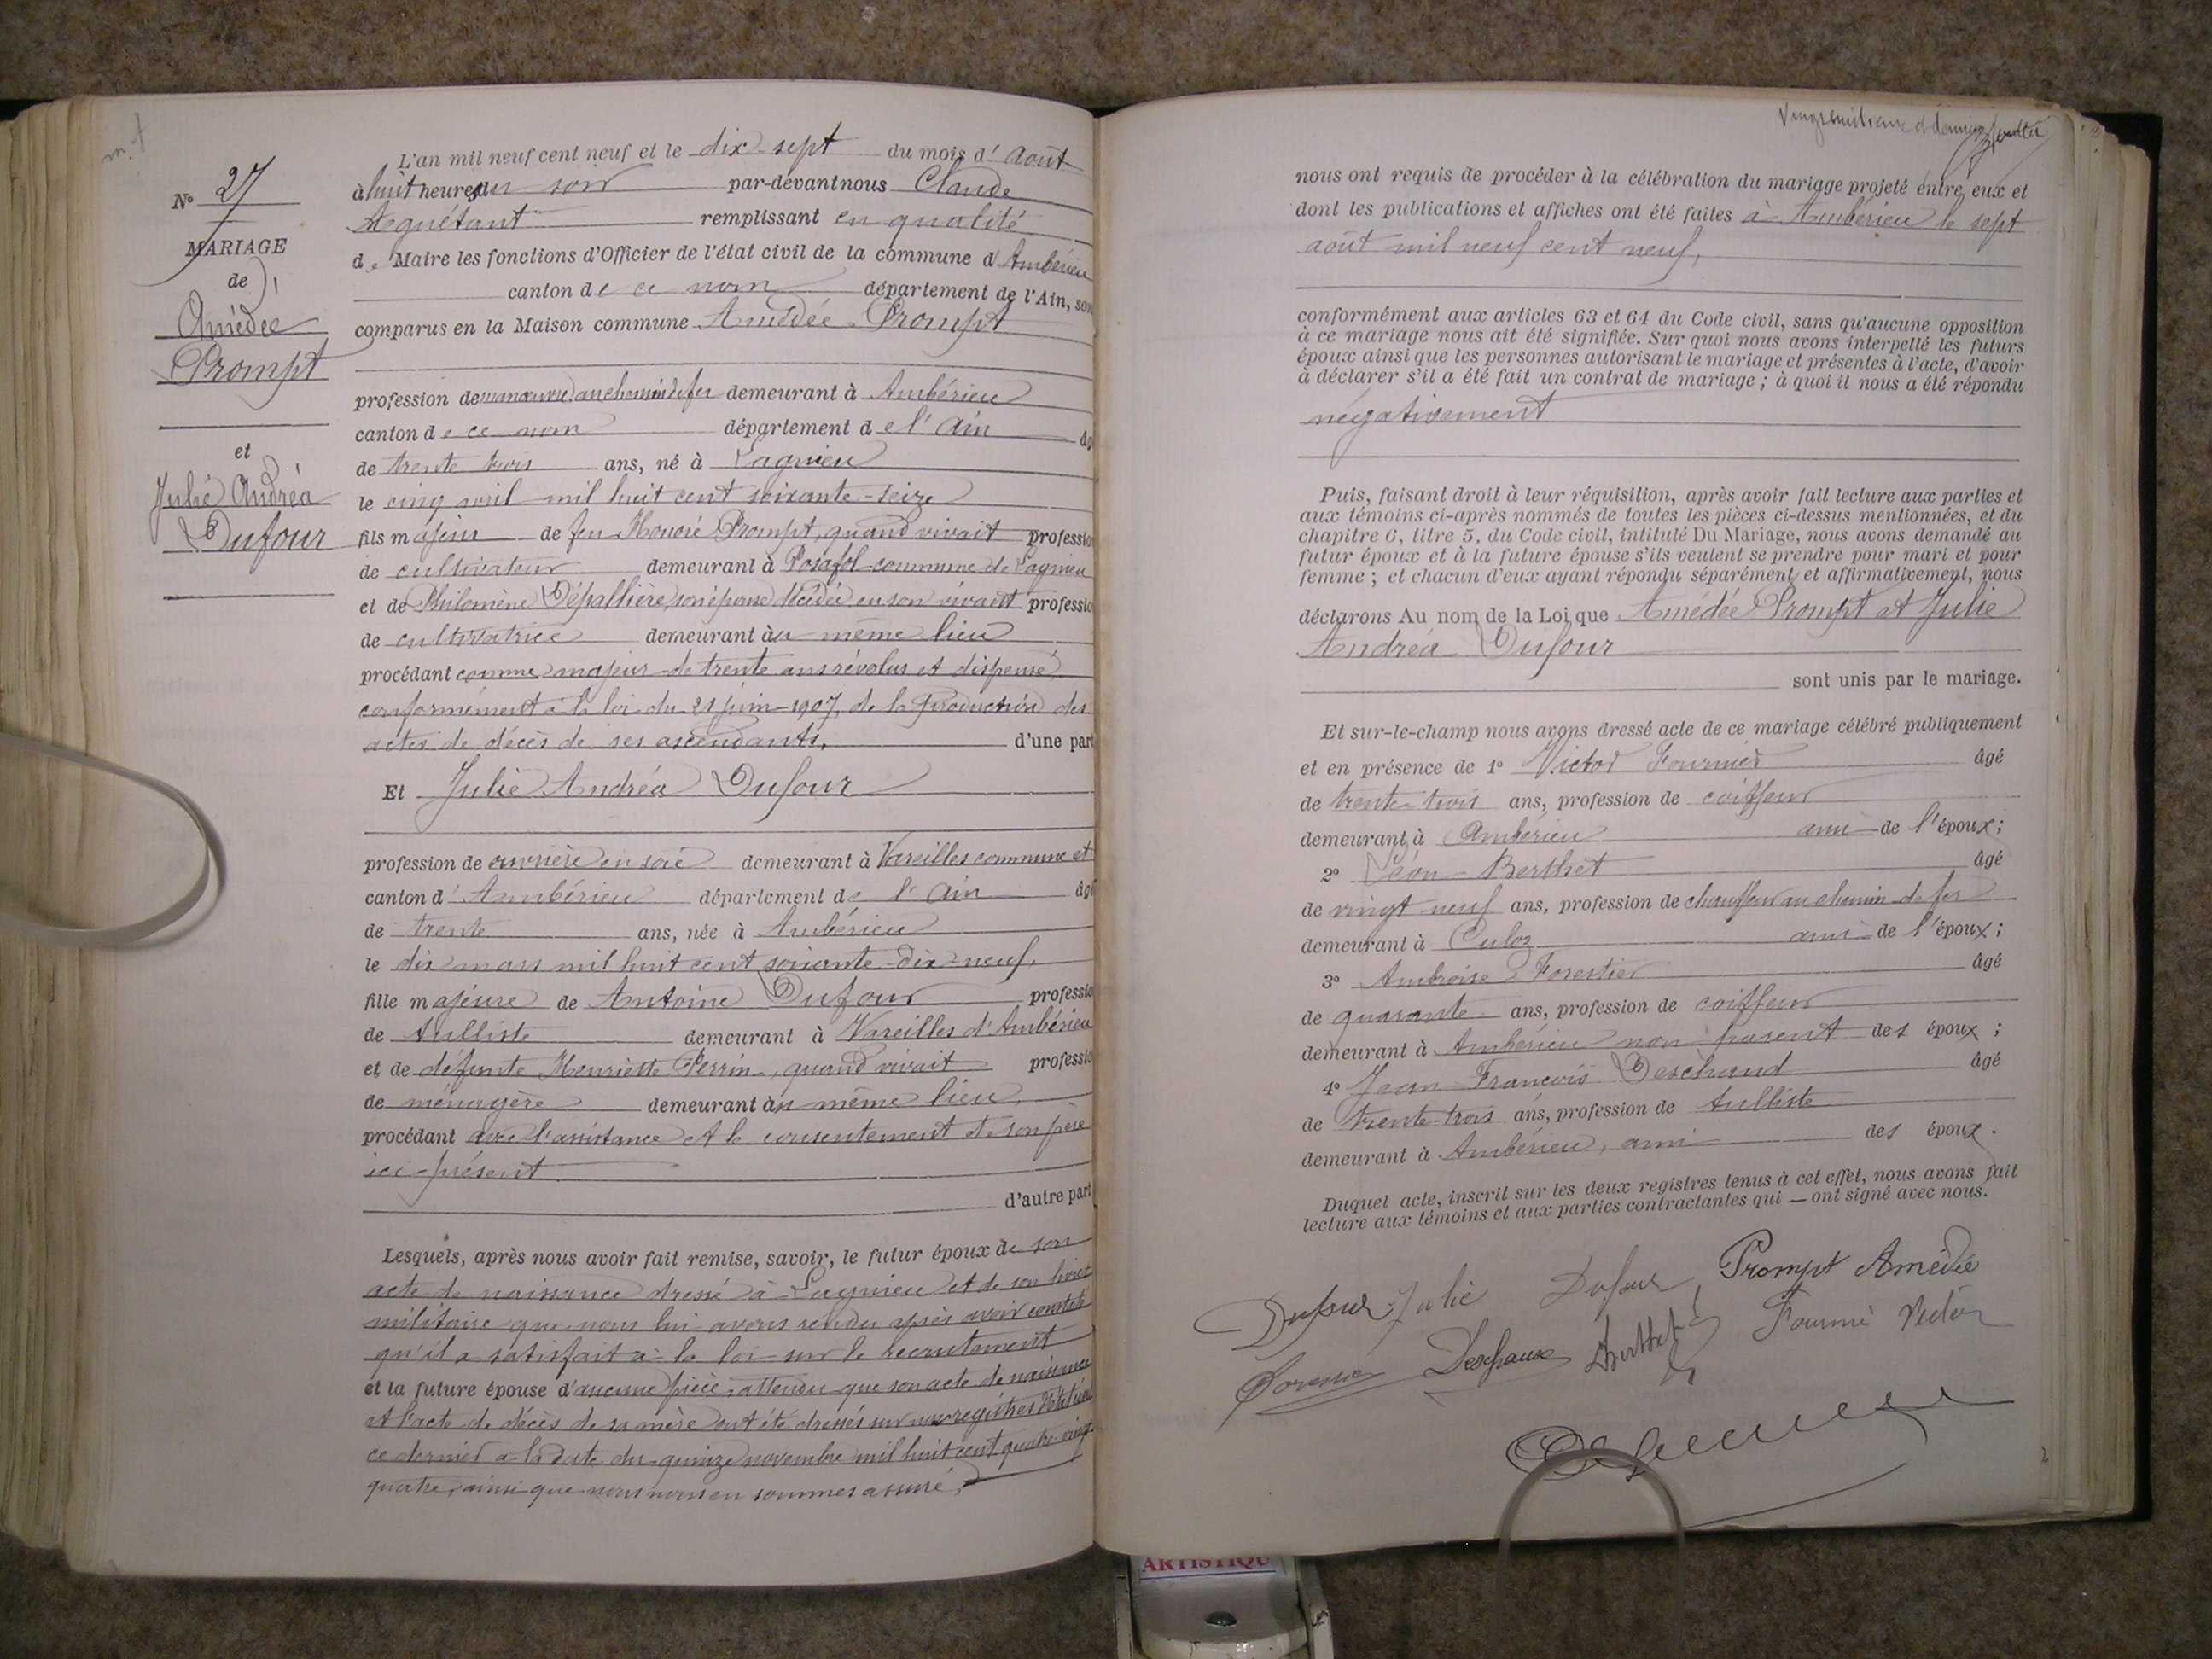 N° 27
MARIAGE
de
Amédée
Prompt
et
Julie Andréa
Dufour
L'an mil neuf cent neuf et le dix-sept du mois d'août
à huit heures du soir par-devant nous Claude
Aguétant remplissant en qualité
de Maire les fonctions d'Officier de l'état civil de la commune d'Ambérieu
canton de ce nom département de l'Ain, son
comparus en la Maison commune Amédée Prompt
profession de manœuvre au chemin de fer demeurant à Ambérieu
canton de ce nom département de l'Ain âg
de trente trois ans, né à Lagnieu
le cinq avril mil huit cent soixante-seize
fils majeur de feu Honoré Prompt, quand vivait professio
de cultivateur demeurant à Posafol commune de Lagnieu
et de Philomène Dépallière, son épouse décédée en son vivant professio
de cultivatrice demeurant au même lieu
procédant comme majeur de trente ans révolus et dispensé
conformément à la loi du 21 juin 1907, de la production des
actes de décès de ses ascendants, d'une part
Et Julie Andréa Dufour
profession de ouvrière en soie demeurant à Vareilles commune et
canton d'Ambérieu département de l'Ain âgé
de trente ans, née à Ambérieu
le dix mars mil huit cent soixante-dix-neuf,
fille majeure de Antoine Dufour professio
de tulliste demeurant à Vareilles d'Ambérieu
et de défunte Henriette Perrin, quand vivait professio
de ménagère demeurant au même lieu,
procédant avec l'assistance et le consentement de son père
ici présent
d'autre part
Lesquels, après nous avoir fait remise, savoir, le futur époux de son
acte de naissance dressé à Lagnieu et de son livret
militaire que nous lui avons rendu après avoir constaté
qu'il a satisfait à la loi sur le recrutement
et la future épouse d'aucune pièce, attendu que son acte de naissance
et l'acte de décès de sa mère ont été dressés sur nos registres d'état civil
ce dernier à la date du quinze novembre mil huit cent quatre-vingt
quatre, ainsi que nous nous en sommes assuré,
nous ont requis de procéder à la célébration du mariage projeté entre eux et
dont les publications et affiches ont été faites à Ambérieu le sept
août mil neuf cent neuf,
conformément aux articles 63 et 64 du Code civil, sans qu'aucune opposition
à ce mariage nous ait été signifiée. Sur quoi nous avons interpellé les futurs
époux ainsi que les personnes autorisant le mariage et présentes à l'acte, d'avoir
à déclarer s'il a été fait un contrat de mariage ; à quoi il nous a été répondu
négativement
Puis, faisant droit à leur réquisition, après avoir fait lecture aux parties et
aux témoins ci-après nommés de toutes les pièces ci-dessus mentionnées, et du
chapitre 6, titre 5, du Code civil, intitulé Du Mariage, nous avons demandé au
futur époux et à la future épouse s'ils veulent se prendre pour mari et pour
femme ; et chacun d'eux ayant répondu séparément et affirmativement, nous
déclarons Au nom de la Loi que Amédée Prompt et Julie
Andréa Dufour
sont unis par le mariage.
Et sur-le-champ nous avons dressé acte de ce mariage célébré publiquement
et en présence de 1° Victor Fournier âgé
de trente-trois ans, profession de coiffeur
demeurant à Ambérieu ami de l'époux ;
2° Léon Berthet âgé
de vingt neuf ans, profession de chauffeur au chemin de fer
demeurant à Culoz ami de l'époux ;
3° Ambroise Forestier âgé
de quarante ans, profession de coiffeur
demeurant à Ambérieu non parent des époux ;
4° Jean François Deschaud âgé
de trente-trois ans, profession de tulliste
demeurant à Ambérieu, ami des époux.
Duquel acte, inscrit sur les deux registres tenus à cet effet, nous avons fait
lecture aux témoins et aux parties contractantes qui — ont signé avec nous.
Dufour Julie Dufour Prompt Amédée
Berthet Victor
ARTISTIQU